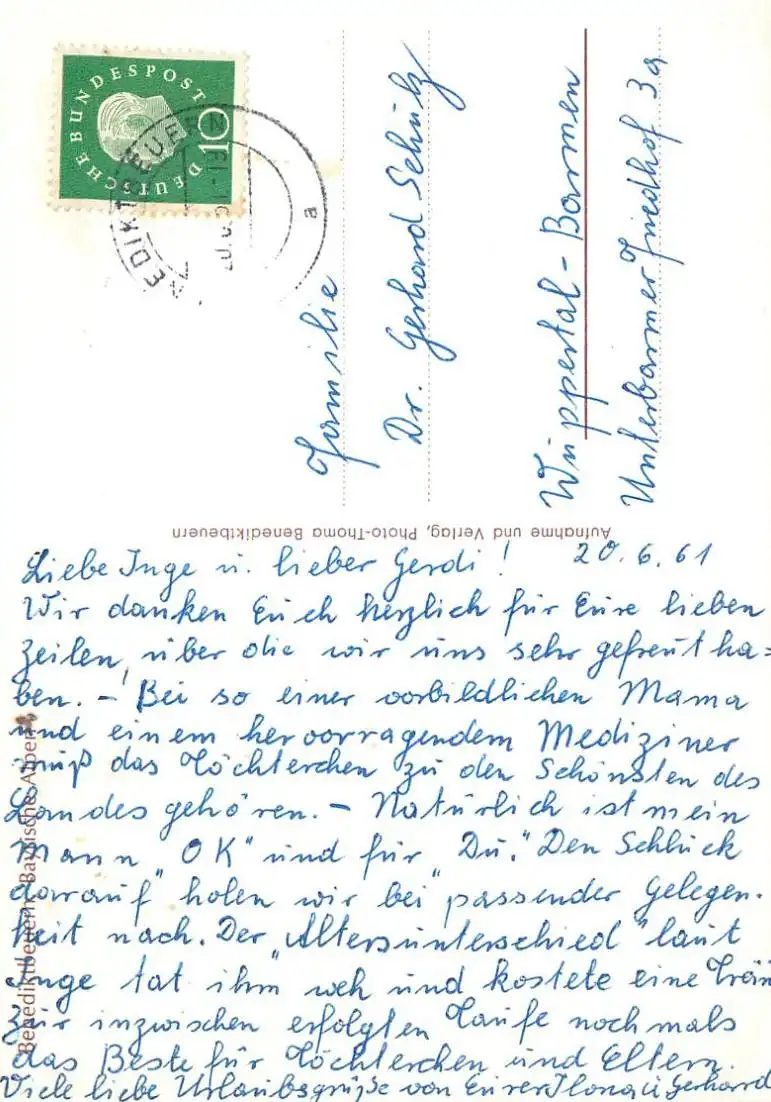 DEUTSCHE BUNDESPOST
10
BENEDIKTBEUERN
a
Familie
Dr. Gerhard Schulz
Wuppertal-Barmen
Unterbarmer Friedhof 3a
Aufnahme und Verlag, Photo-Thoma Benediktbeuern
Benediktbeuern - Bayrische Alpen
20.6.61
Liebe Inge u. lieber Gerdi!
Wir danken Euch herzlich für Eure lieben
Zeilen, über die wir uns sehr gefreut ha=
ben. - Bei so einer vorbildlichen Mama
und einem hervorragendem Mediziner
muß das Töchterchen zu den Schönsten des
Landes gehören. - Natürlich ist mein
Mann „OK" und für „Du". Den Schluck
darauf" holen wir bei passender Gelegen.
heit nach. Der „Altersunterschied" laut
Inge tat ihm weh und kostete eine Trän
Zur inzwischen erfolgten Taufe nochmals
das Beste für Töchterchen und Eltern.
Viele liebe Urlaubsgrüße von Eurer Ilona u Gerhard